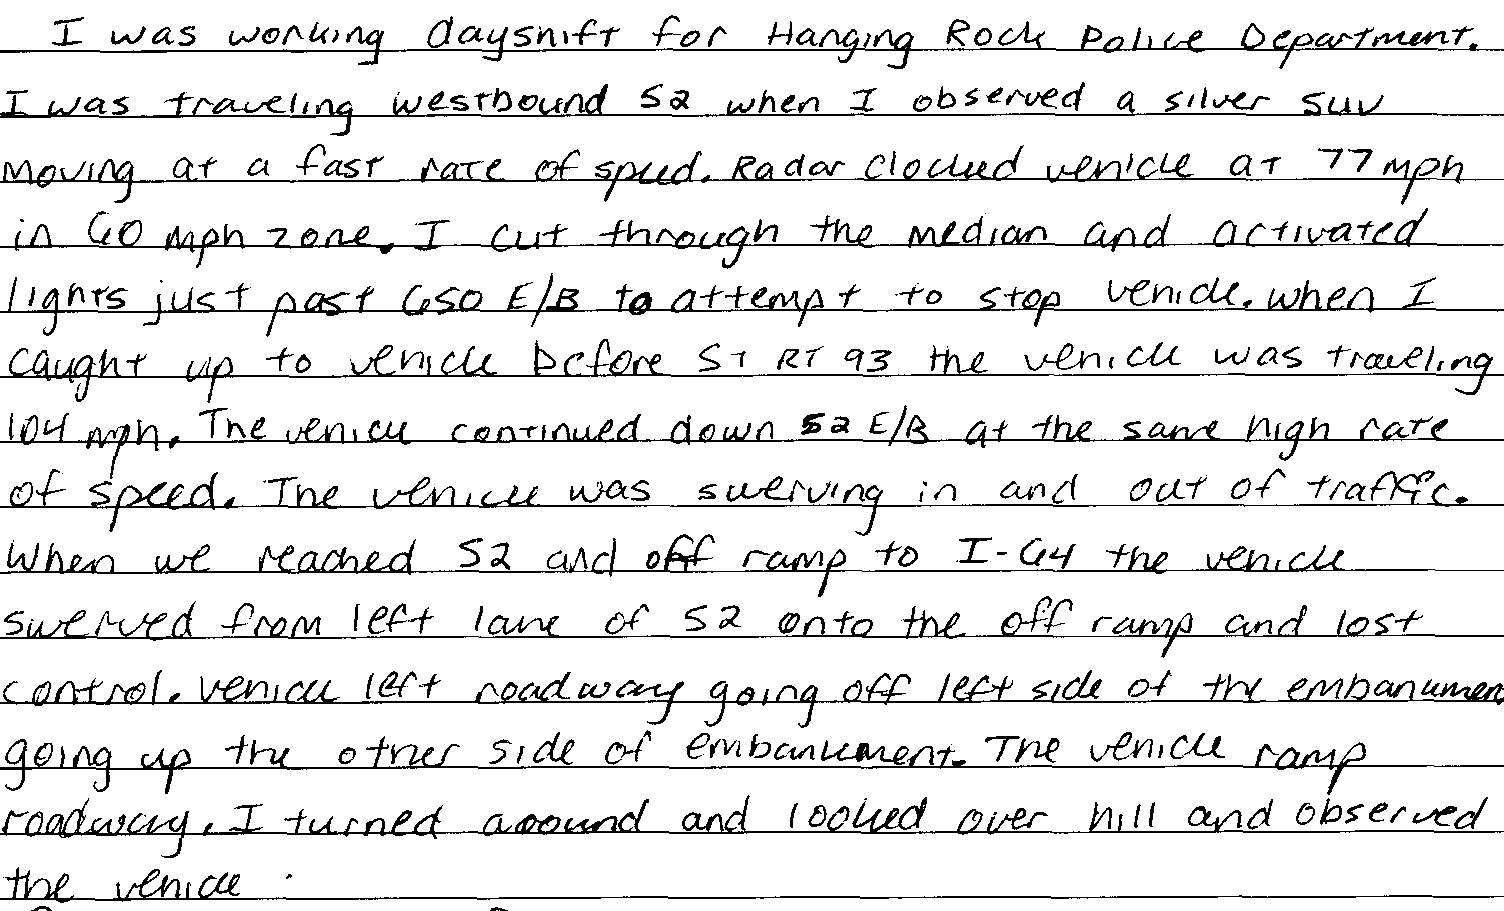 I was working dayshift for Hanging Rock Police Department.
I was traveling westbound 52 when I observed a silver suv
moving at a fast rate of speed. Radar clocked vehicle at 77 mph
in 60 mph zone. I cut through the median and activated
lights just past 650 E/B to attempt to stop vehicle. when I
caught up to vehicle before ST RT 93 the vehicle was traveling
104 mph. The vehicle continued down 52 E/B at the same high rate
of speed. The vehicle was swerving in and out of traffic.
When we reached 52 and off ramp to I-64 the vehicle
swerved from left lane of 52 onto the off ramp and lost
control. vehicle left roadway going off left side of the embankmen
going up the other side of embankment. The vehicle ramp
roadway. I turned around and looked over hill and observed
the vehicle